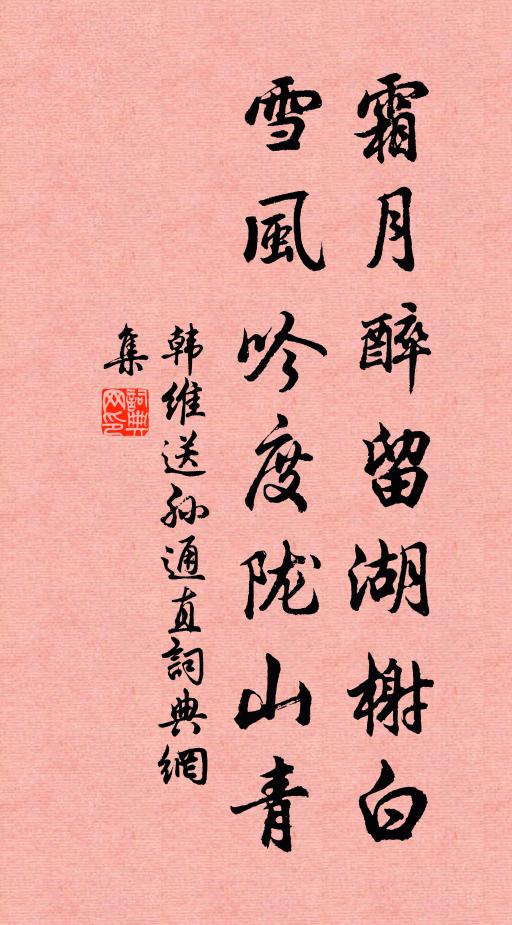 霜月醉留湖榭白
雪風吟度陇山青
韩维送孙通直詞典網
集
詞典
网印